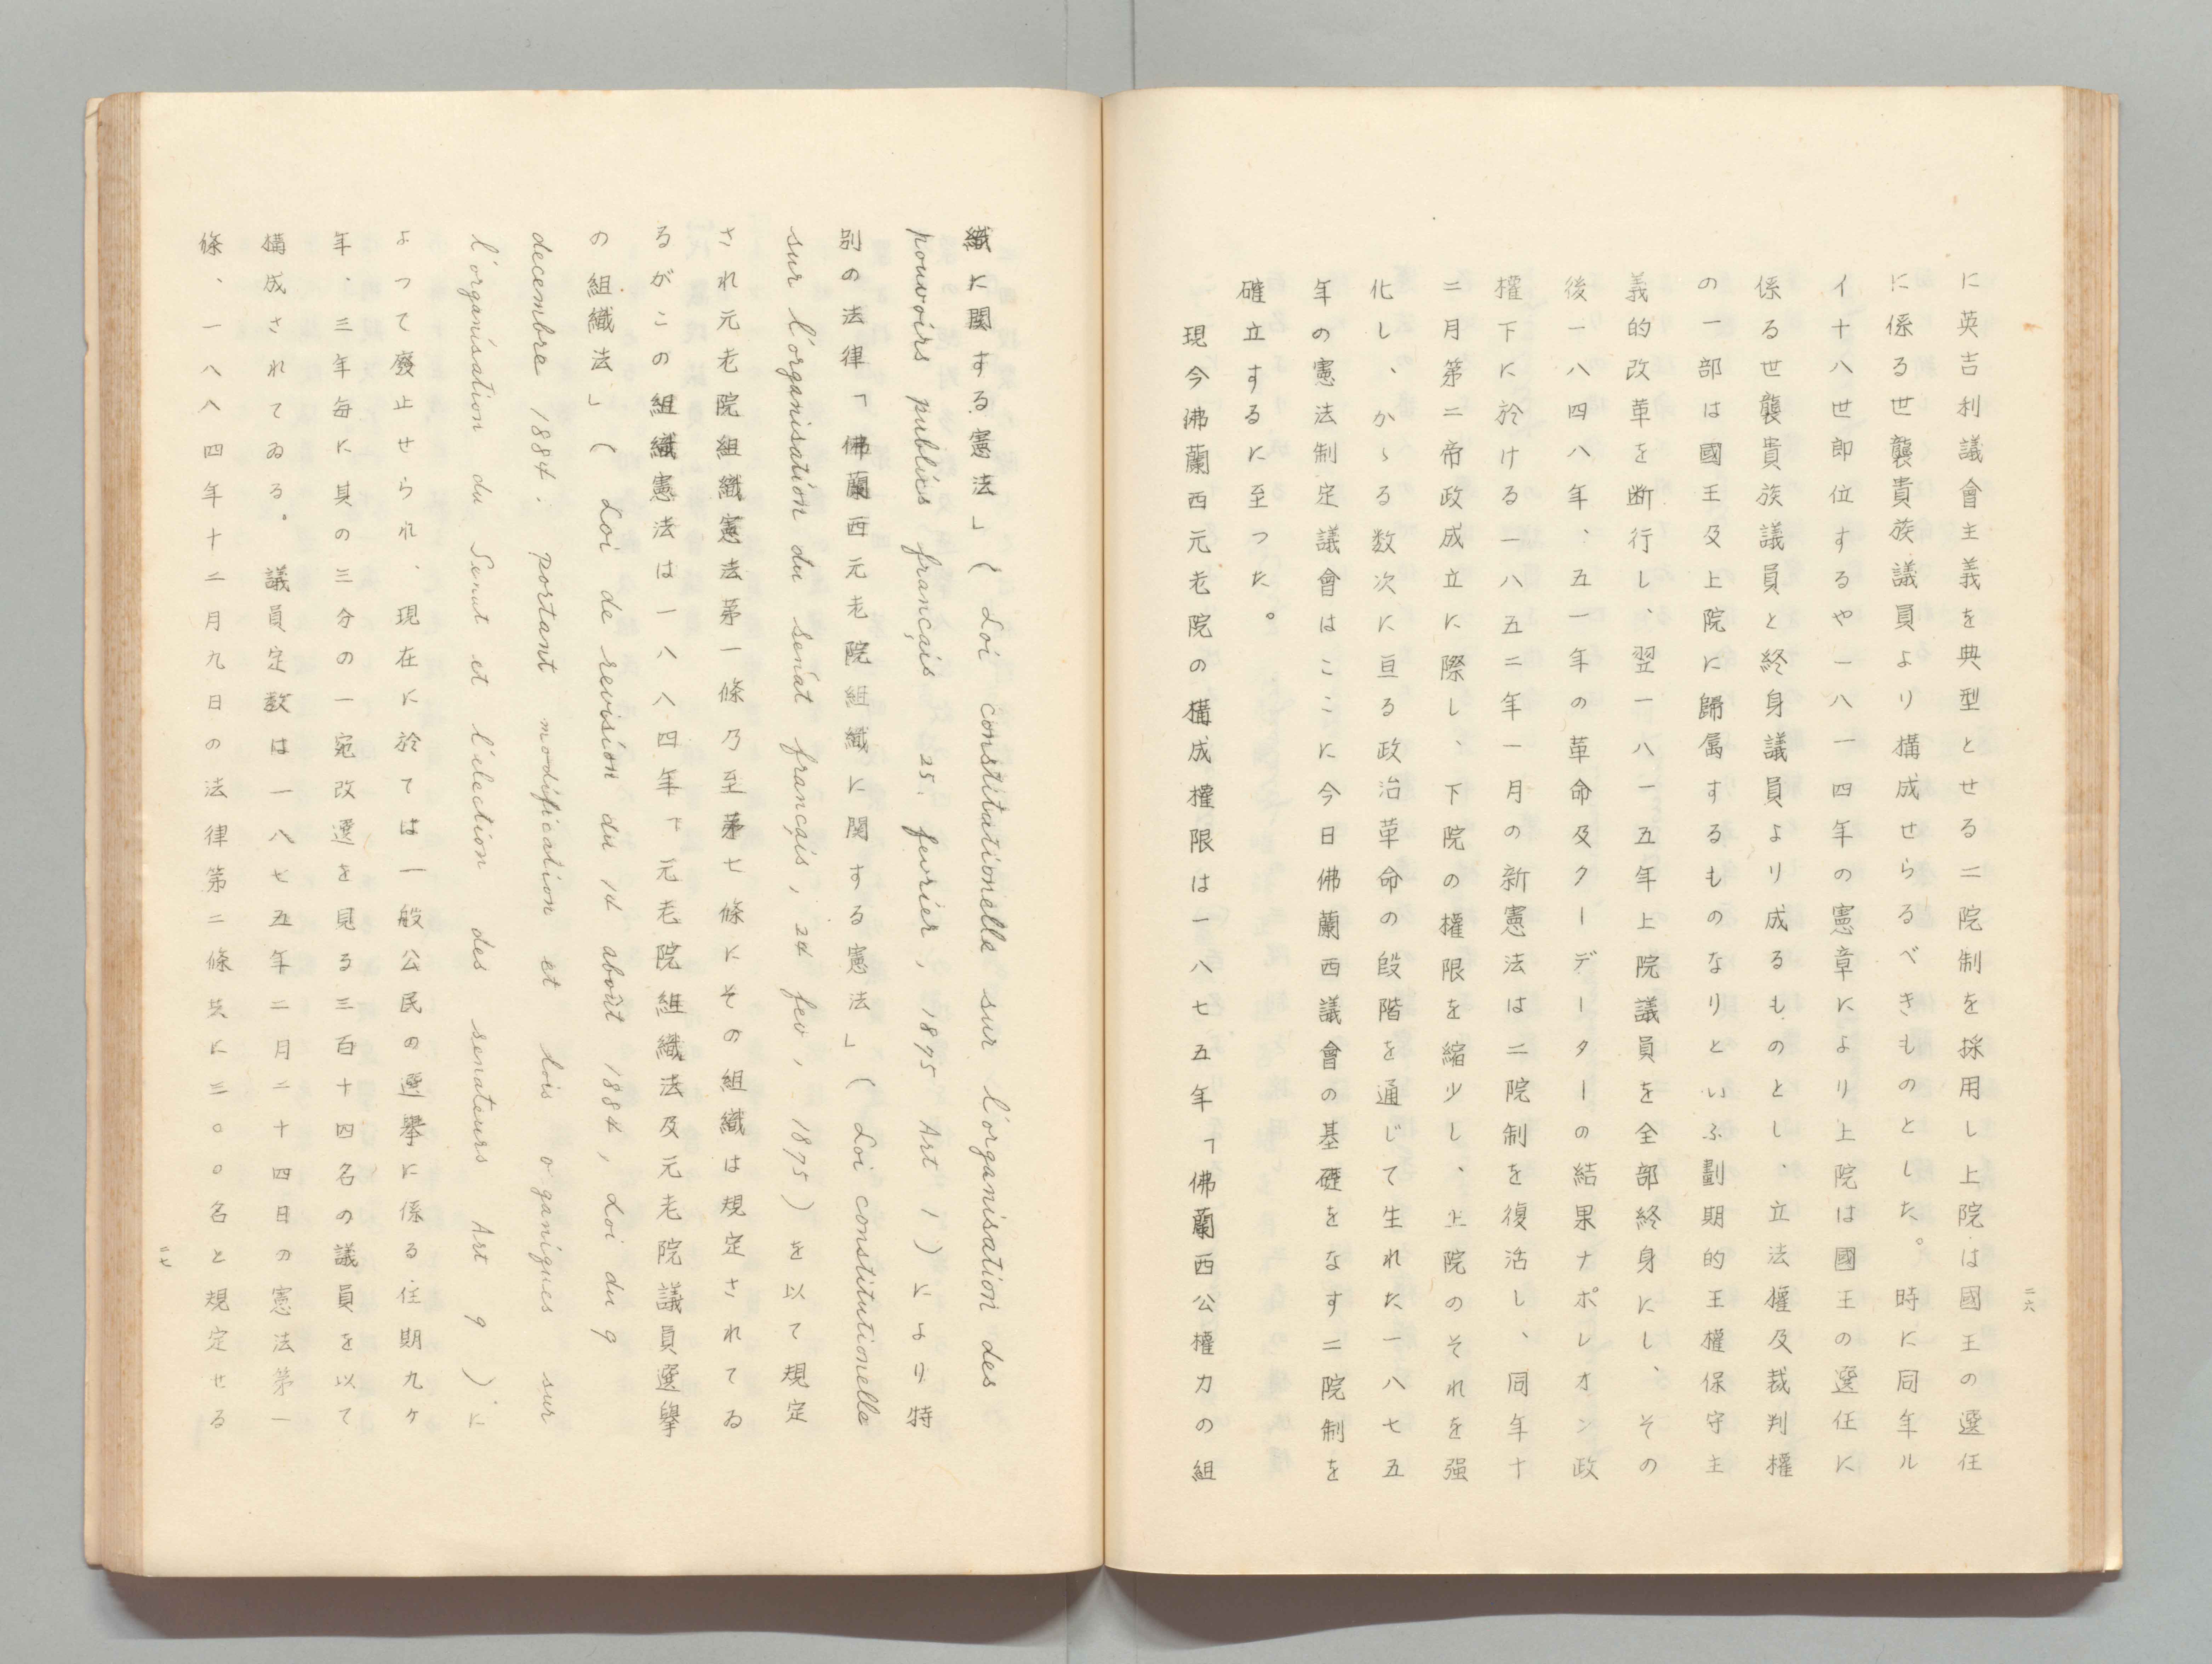 二六
に英吉利議會主義を典型とせる二院制を採用し上院は國王の選任
に係る世襲貴族議員より構成せらるべきものとした。時に同年ル
イ十八世即位するや一八一四年の憲章により上院は國王の選任に
係る世襲貴族議員と終身議員より成るものとし、立法權及裁判權
の一部は國王及上院に歸属するものなりといふ劃期的王權保守主
義的改革を断行し、翌一八一五年上院議員を全部終身にし、その
後一八四八年、五一年の革命及クーデーターの結果ナポレオン政
權下に於ける一八五二年一月の新憲法は二院制を復活し、同年十
二月第二帝政成立に際し、下院の權限を縮少し、上院のそれを强
化し、かゝる数次に亘る政治革命の段階を通じて生れた一八七五
年の憲法制定議會はここに今日佛蘭西議會の基礎をなす二院制を
確立するに至つた。
現今佛蘭西元老院の構成權限は一八七五年「佛蘭西公權力の組
織に関する憲法」( Loi constitutionella sur l'organisation des
pouvoirs publics français 25. fevrier, 1895 Art 1 )により特
别の法律「佛蘭西元老院組織に関する憲法」( Loi constitutionella
sur l'organisation du senat français, 24 fev, 1875 )を以て規定
され元老院組織憲法第一條乃至第七條にその組織は規定されてゐ
るがこの組織憲法は一八八四年下元老院組織法及元老院議員選擧
の組織法」( Loi de revision du 14 août 1884, Loi du 9
decembre 1884: portant modification et lois organiques sur
l'organisation du Senat et l'election des senateurs Art 9 )に
よつて廢止せられ、現在に於ては一般公民の選擧に係る任期九ヶ
年、三年毎に其の三分の一宛改選を見る三百十四名の議員を以て
構成されてゐる。議員定数は一八七五年二月二十四日の憲法第一
條、一八八四年十二月九日の法律第二條共に三〇〇名と規定せる
二七